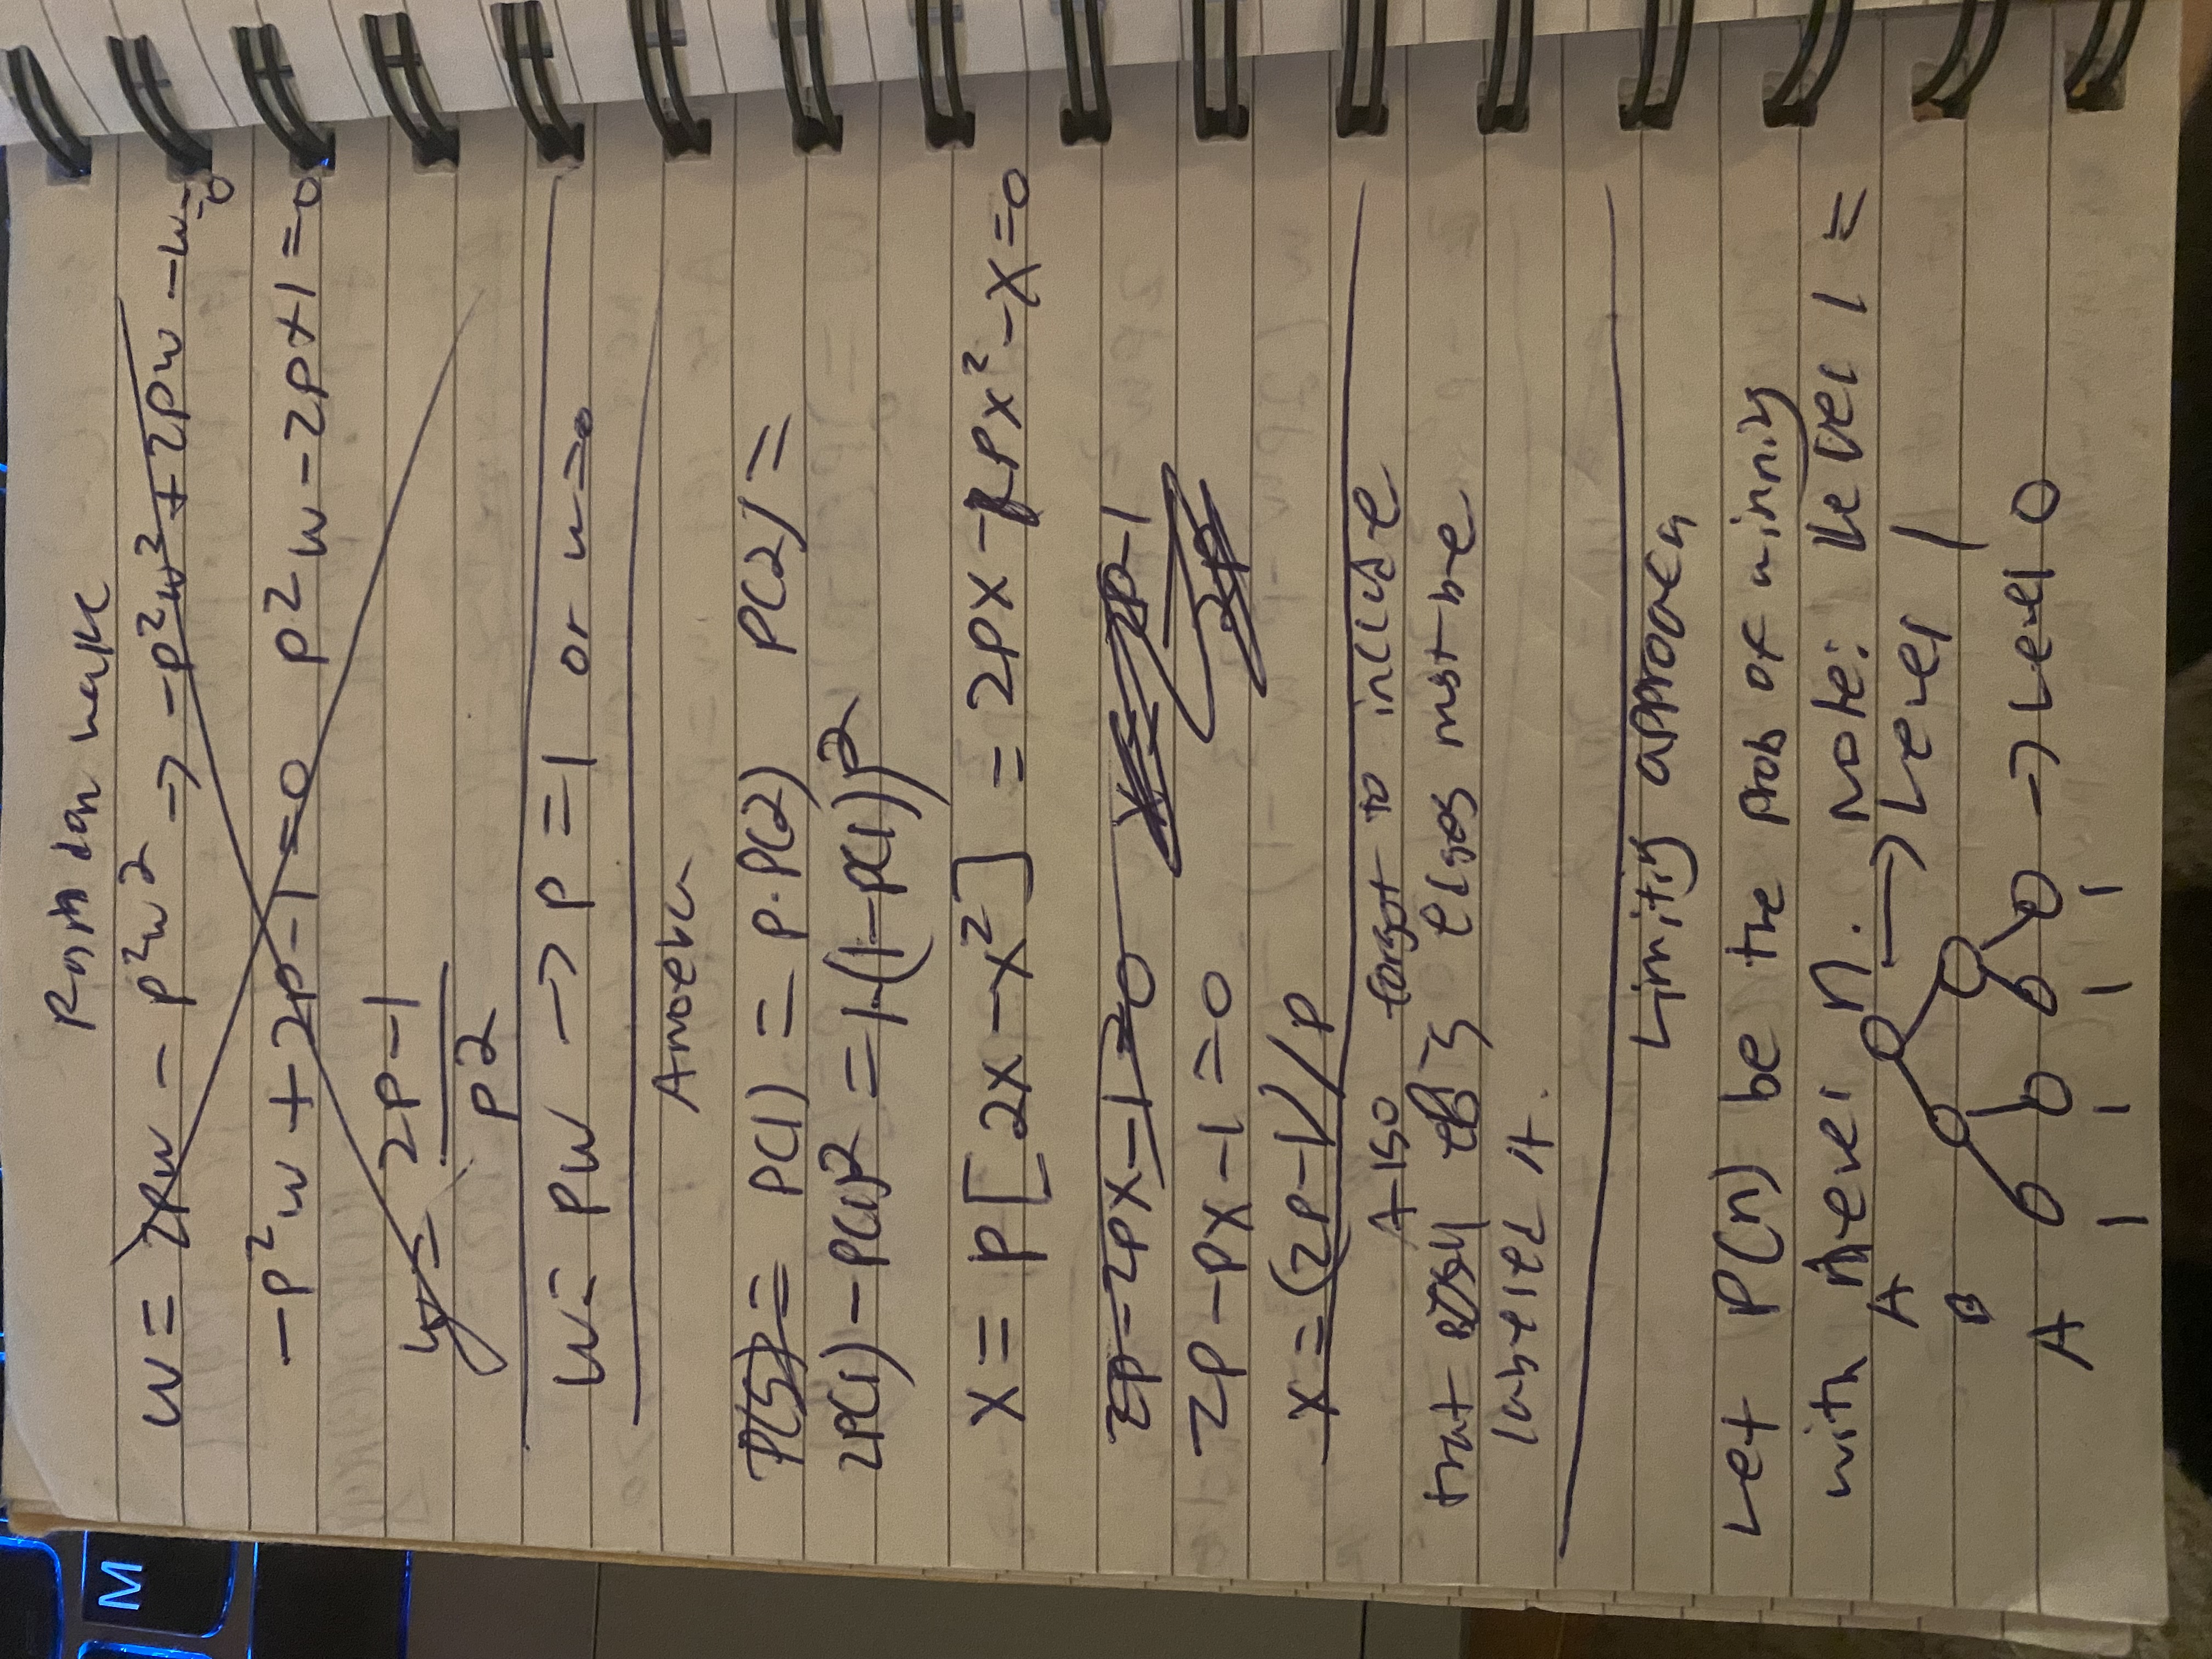 M
Random walk
w = 2pw - p²w² → -p²w² + 2pw - w = 0
-p²w + 2p - 1 = 0 p²w - 2p + 1 = 0
w = 2p-1 / p2
w = pw → p = 1 or w = 0
Amoeba
P(S) = P(1) = p·P(2) P(2) =
2P(1) - P(1)² = 1-(1-P(1))²
x = p[2x - x²] = 2px - px² - x = 0
2p - 2px - 1 = 0 x = 2p-1 / 2p
2p - px - 1 = 0
x = (2p-1)/p
Also forgot to include
that B's edges must be
labeled A.
Limiting approach
Let P(n) be the prob of winning
with level n. Note: level 1 =
A → Level 1
B
A → Level 0
1 1 1 1